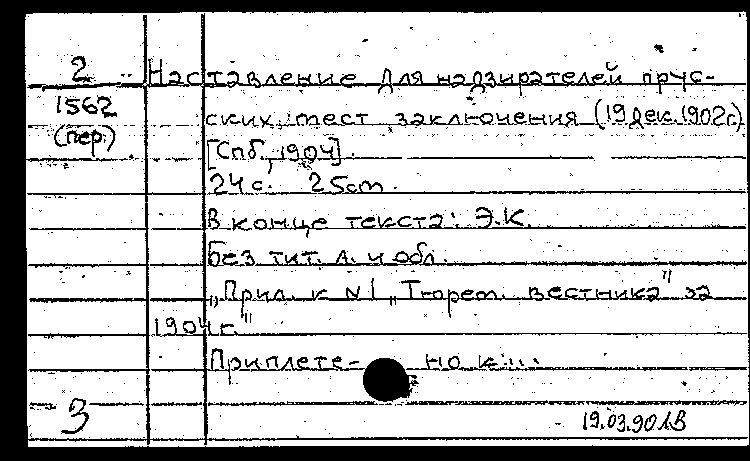 2 Наставление для надзирателей прус-
1562 ских мест заключения (19 дек. 1902 г.)
(пер.) [Спб., 1904].
24 с. 25 cm.
В конце текста: Э.К.
Без тит. л. и обл.
„Прил. к N 1 „Тюрем. вестника" за
1904 г."
Приплете- но к...
3 19.03.90 ЛВ